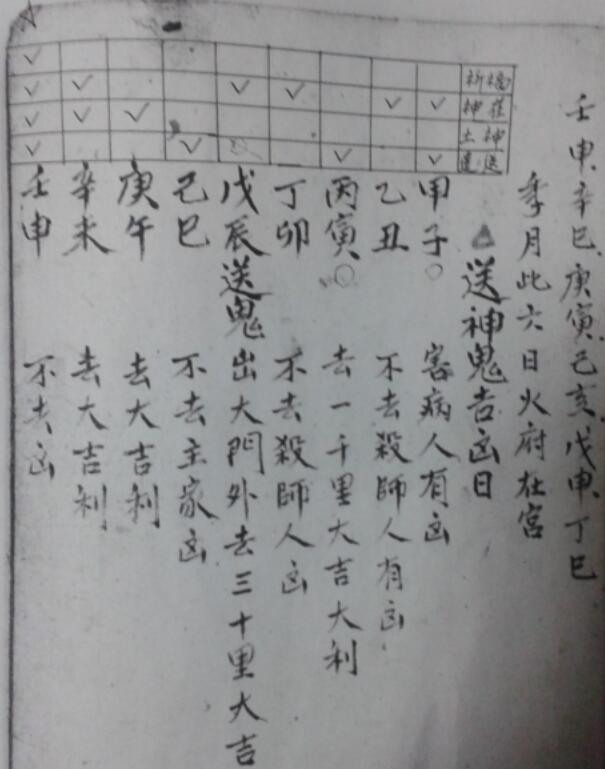 壬申、辛巳、庚寅、己亥、戊申、丁巳
季月此六日火府在宮
△送神鬼吉凶日
祈福
神荘
土神
送
甲子○ 害病人有凶
乙丑 不去殺師人有凶
丙寅○ 去一千里大吉大利
丁卯 不去殺師人凶
戊辰送鬼 出大門外去三十里大吉
己巳 不去主家凶
庚午 去大吉利
辛未 去大吉利
壬申 不去凶